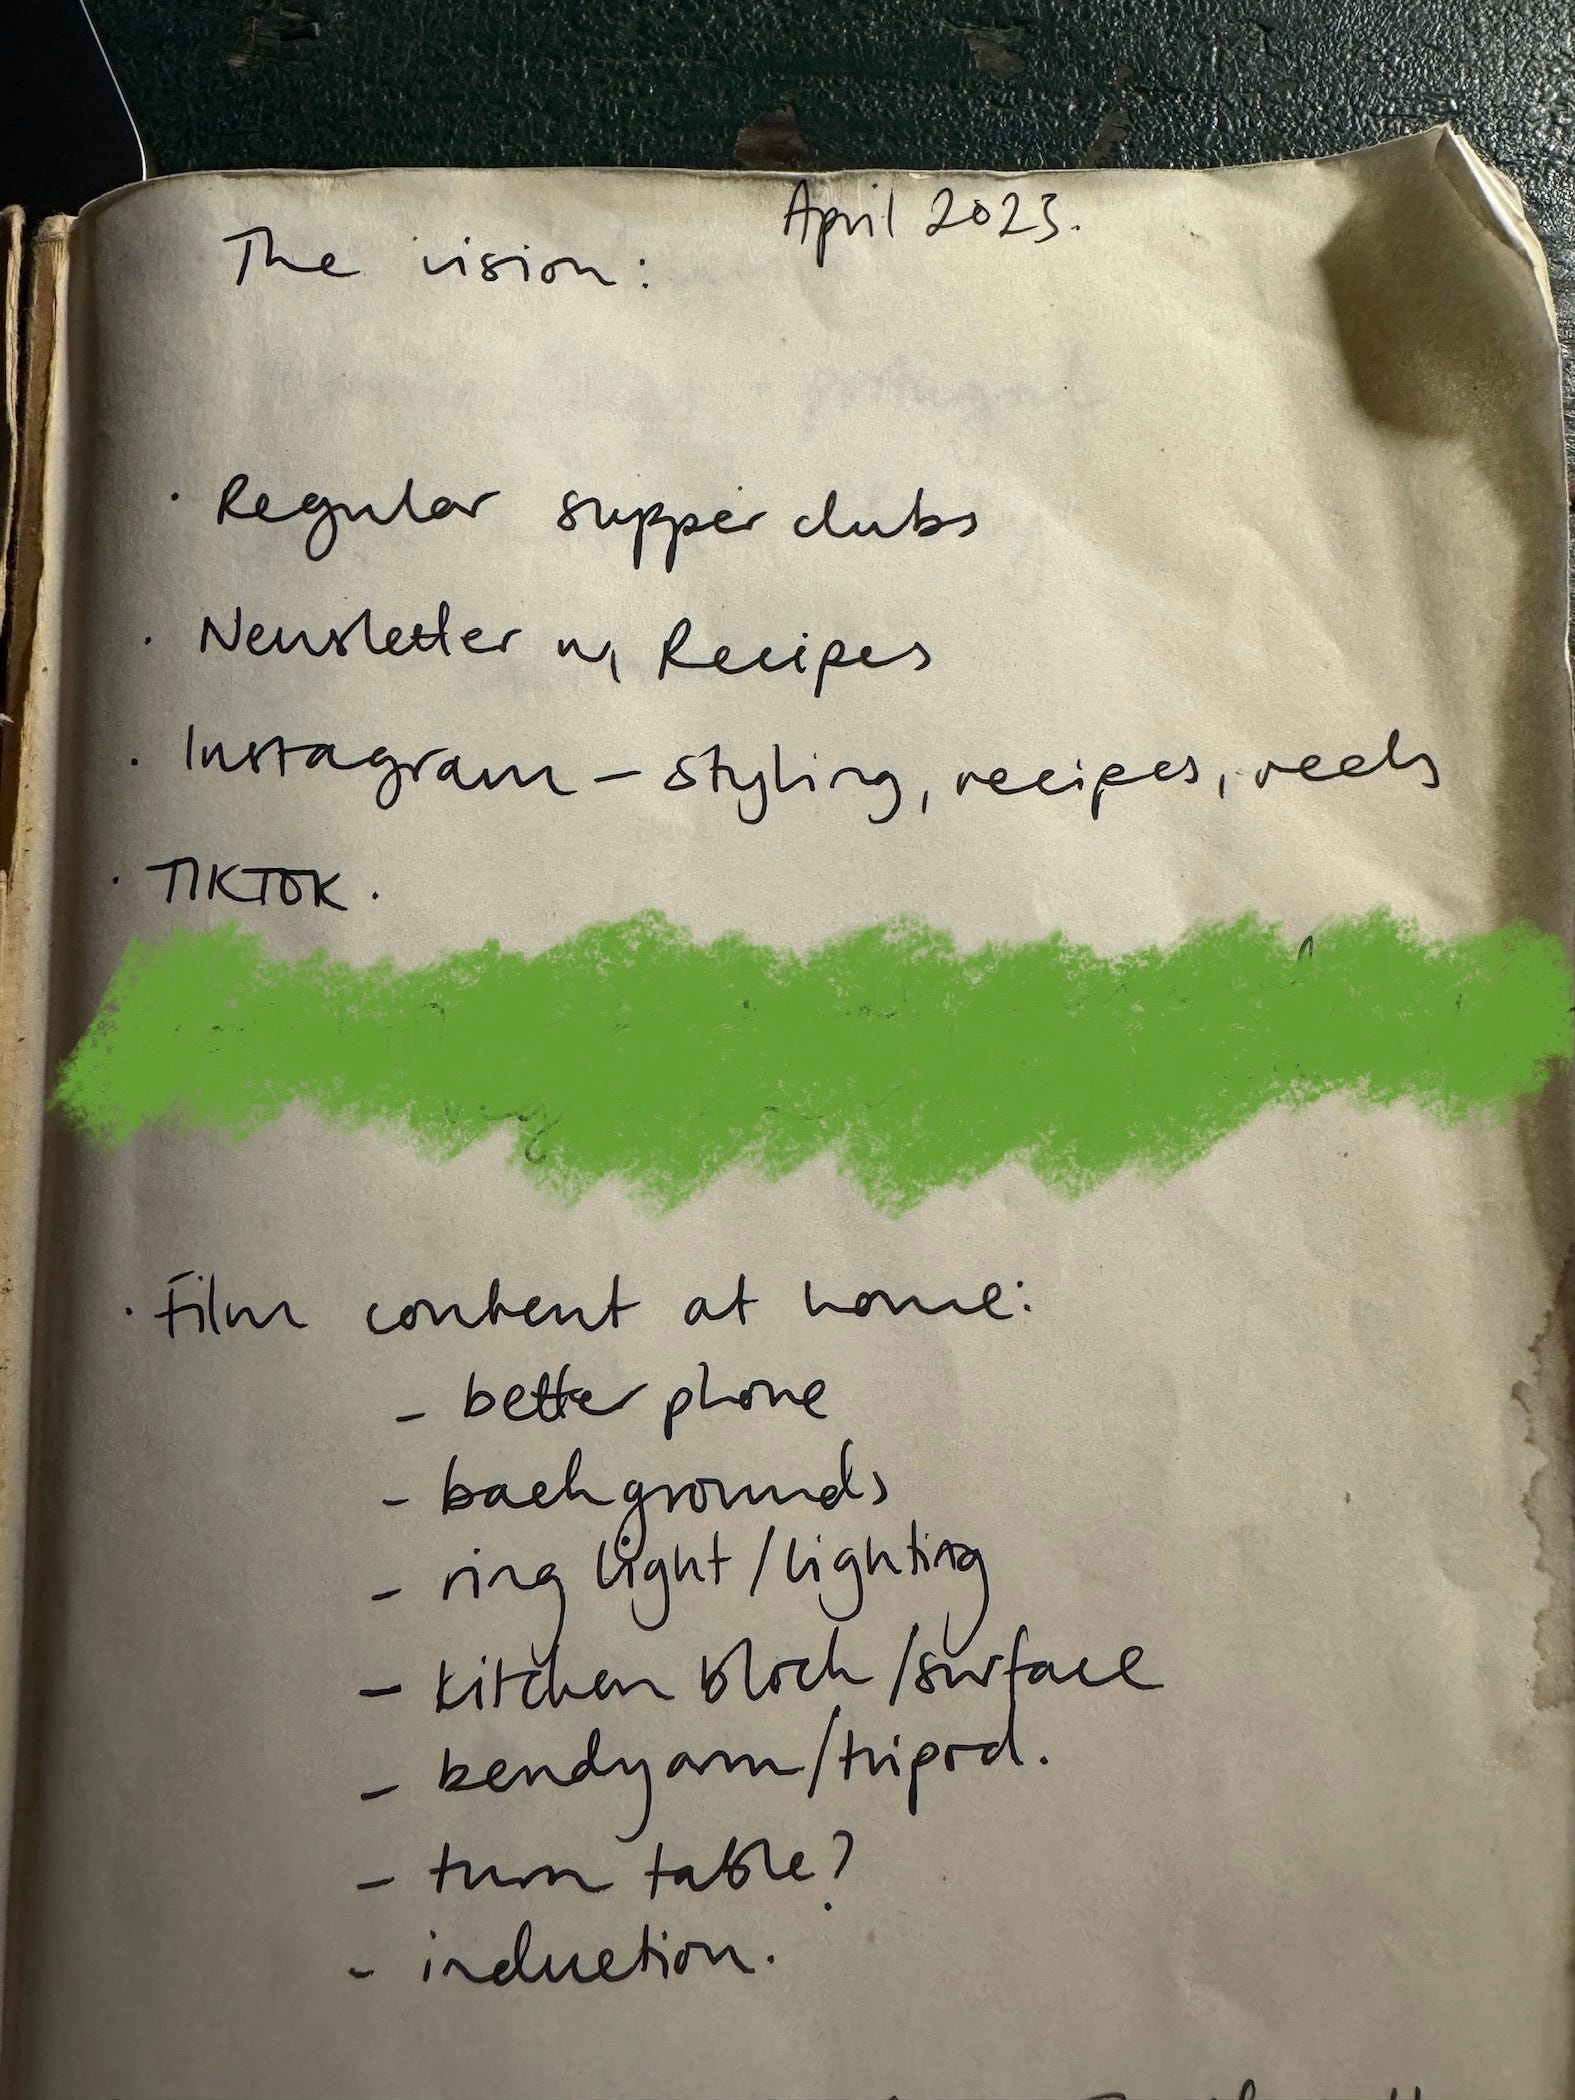 April 2023.
The vision:
· Regular supper clubs
· Newsletter w/ Recipes
· Instagram – styling, recipes, reels
· TIKTOK.
· Film content at home:
- better phone
- backgrounds
- ring light/lighting
- kitchen block/surface
- bendy arm/tripod.
- turn table?
- induction.